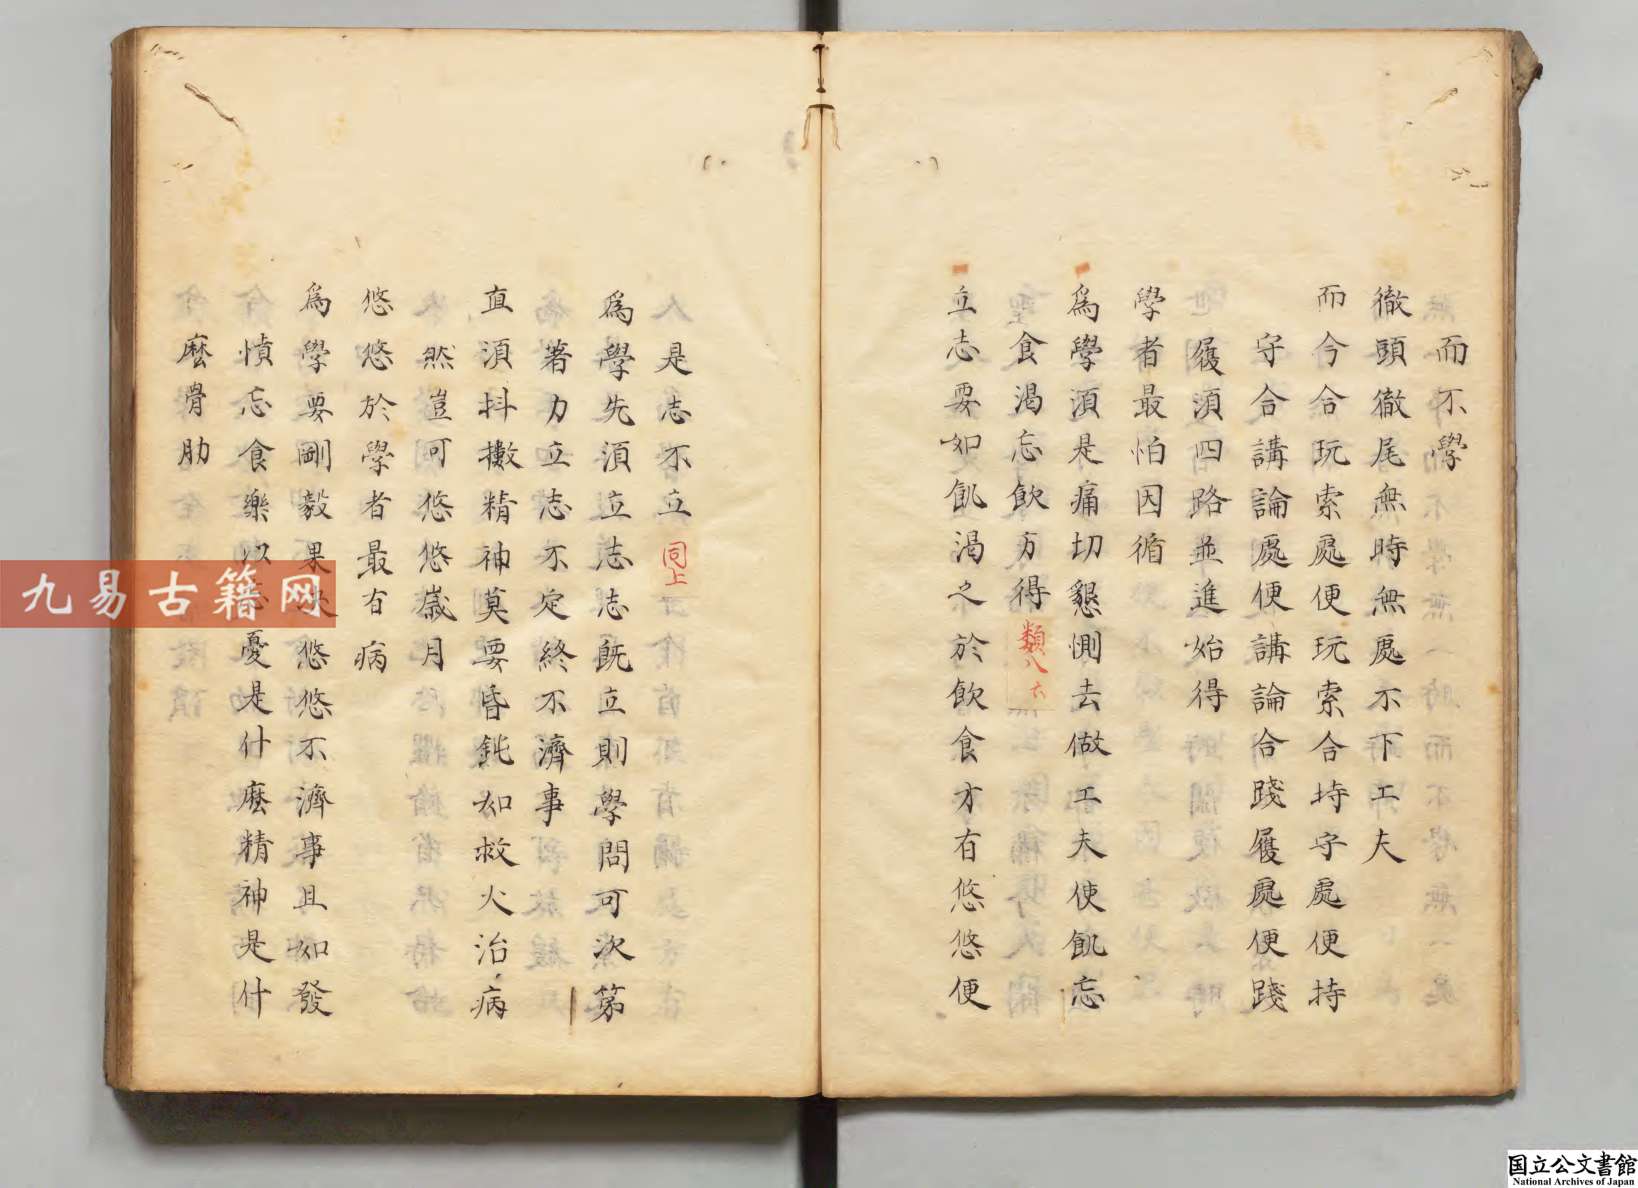 而不學
徹頭徹尾無時無處不下工夫
而今合玩索處便玩索合持守處便持
守合講論處便講論合踐履處便踐
履須四路並進始得
學者最怕因循
為學須是痛切懇惻去做工夫使飢忘
食渴忘飲方得 類八 六
立志要如飢渴之於飲食才有悠悠便
人是志不立 同上
為學先須立志志既立則學問可次第
著力立志不定終不濟事
直須抖擻精神莫要昏鈍如救火治病
然豈可悠悠歲月
悠悠於學者最有病
為學要剛毅果決悠悠不濟事且如發
憤忘食樂以忘憂是什麼精神是什
麼骨肋
九易古籍网
国立公文書館
National Archives of Japan